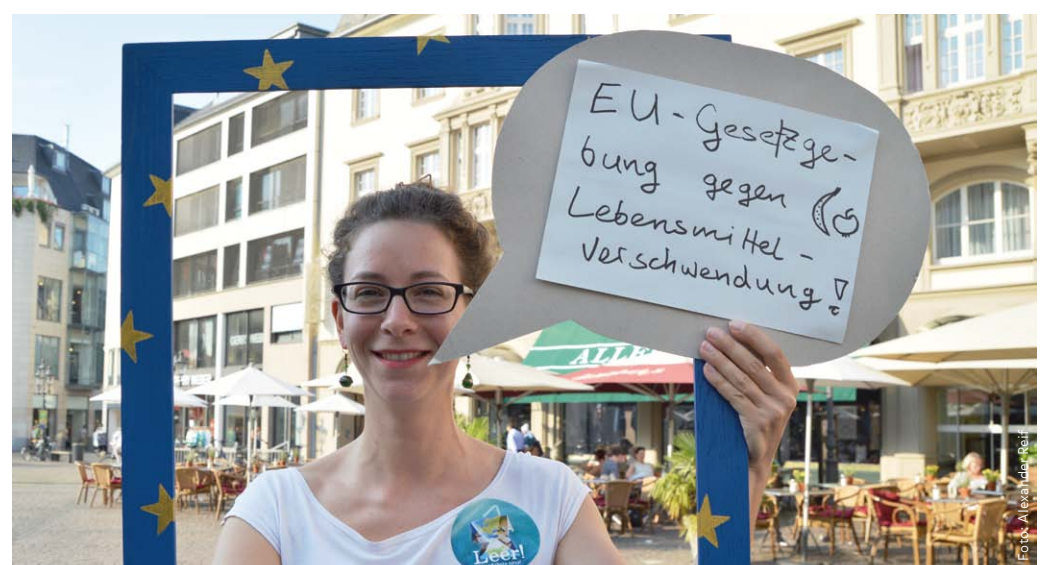 EU-Gesetzge-
bung gegen
Lebensmittel-
verschwendung!
ALLE
Leer!
Foto: Alexander Reif